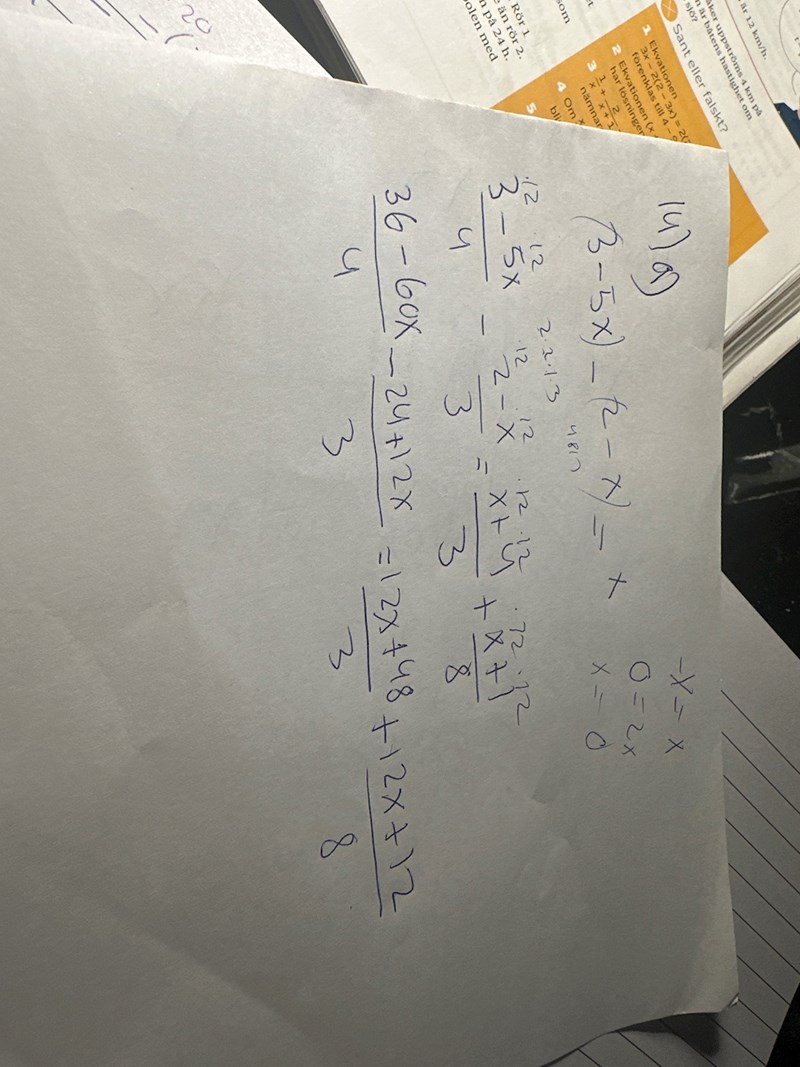 är 12 km/h.
åker uppströms 4 km på
n är båtens hastighet om
sjö?
Sant eller falskt?
1 Ekvationen
3x − 2(2 − 3x) = 2(
förenklas till 4 −
2 Ekvationen (x
har lösningen
3 1/x + 2/(x + 1)
nämnar
4 Om x
bli
5
om
Rör 1
e än rör 2.
n på 24 h.
olen med
20
14) a)
(3 − 5x) − (2 − x) = x
-x = x
0 = 2x
x = 0
2·2·13
·12 ·12 ·12 ·12 ·12 ·12 ·12 ·12
(3 − 5x)/4 − (2 − x)/3 = (x + 4)/3 + (x + 1)/8
(36 − 60x)/4 − (24 + 12x)/3 = (12x + 48)/3 + (12x + 12)/8